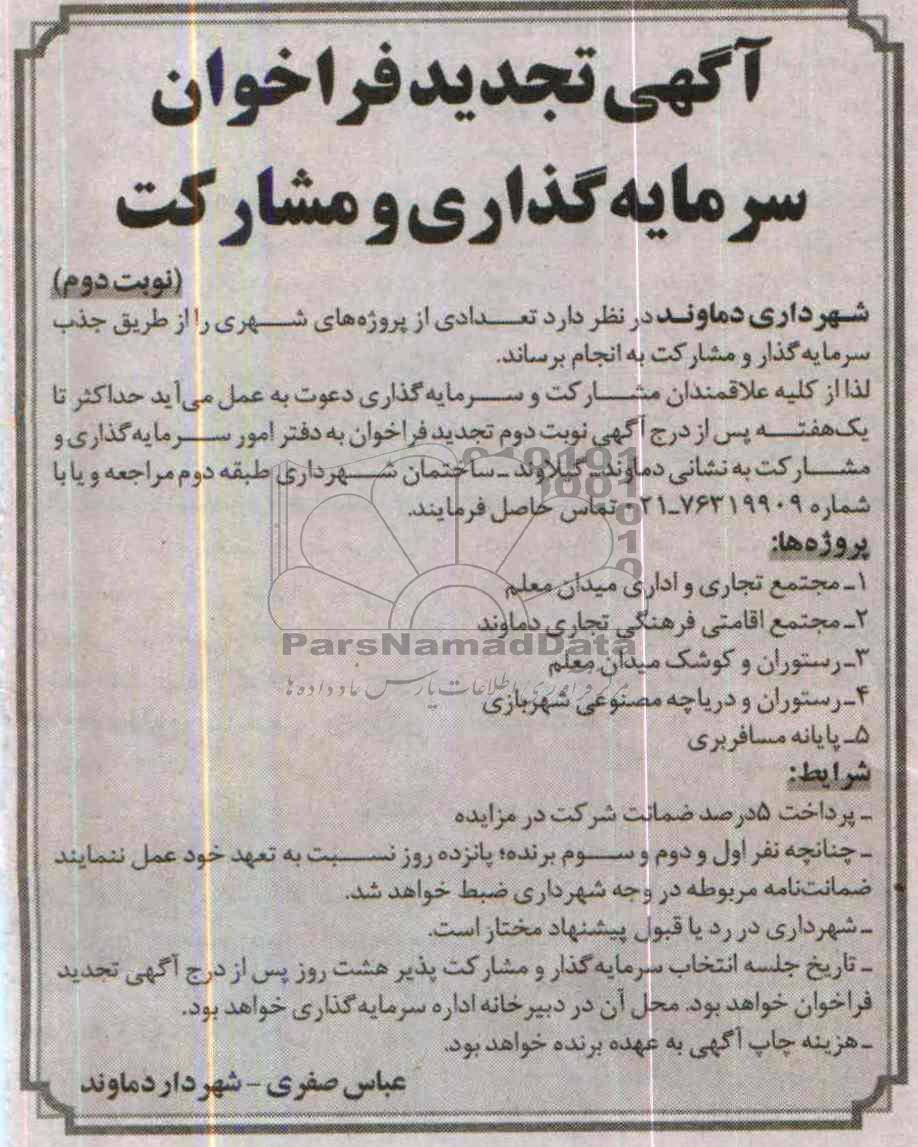 آگهی تجدید فراخوان
سرمایه گذاری و مشارکت
(نوبت دوم)
شهرداری دماوند در نظر دارد تعدادی از پروژه‌های شهری را از طریق جذب
سرمایه گذار و مشارکت به انجام برساند.
لذا از کلیه علاقمندان مشارکت و سرمایه گذاری دعوت به عمل می‌آید حداکثر تا
یک هفته پس از درج آگهی نوبت دوم تجدید فراخوان به دفتر امور سرمایه گذاری و
مشارکت به نشانی دماوند ـ گیلاوند ـ ساختمان شهرداری طبقه دوم مراجعه و یا با
شماره ۷۶۳۱۹۹۰۹ـ۰۲۱ تماس حاصل فرمایند.
پروژه‌ها:
۱ـ مجتمع تجاری و اداری میدان معلم
۲ـ مجتمع اقامتی فرهنگی تجاری دماوند
ParsNamadData
۳ـ رستوران و کوشک میدان معلم
مرکز فرآوری اطلاعات پارس نماد داده ها
۴ـ رستوران و دریاچه مصنوعی شهربازی
۵ـ پایانه مسافربری
شرایط:
ـ پرداخت ۵درصد ضمانت شرکت در مزایده
ـ چنانچه نفر اول و دوم و سوم برنده؛ پانزده روز نسبت به تعهد خود عمل ننمایند
ضمانت‌نامه مربوطه در وجه شهرداری ضبط خواهد شد.
ـ شهرداری در رد یا قبول پیشنهاد مختار است.
ـ تاریخ جلسه انتخاب سرمایه گذار و مشارکت پذیر هشت روز پس از درج آگهی تجدید
فراخوان خواهد بود. محل آن در دبیرخانه اداره سرمایه گذاری خواهد بود.
ـ هزینه چاپ آگهی به عهده برنده خواهد بود.
عباس صفری - شهردار دماوند